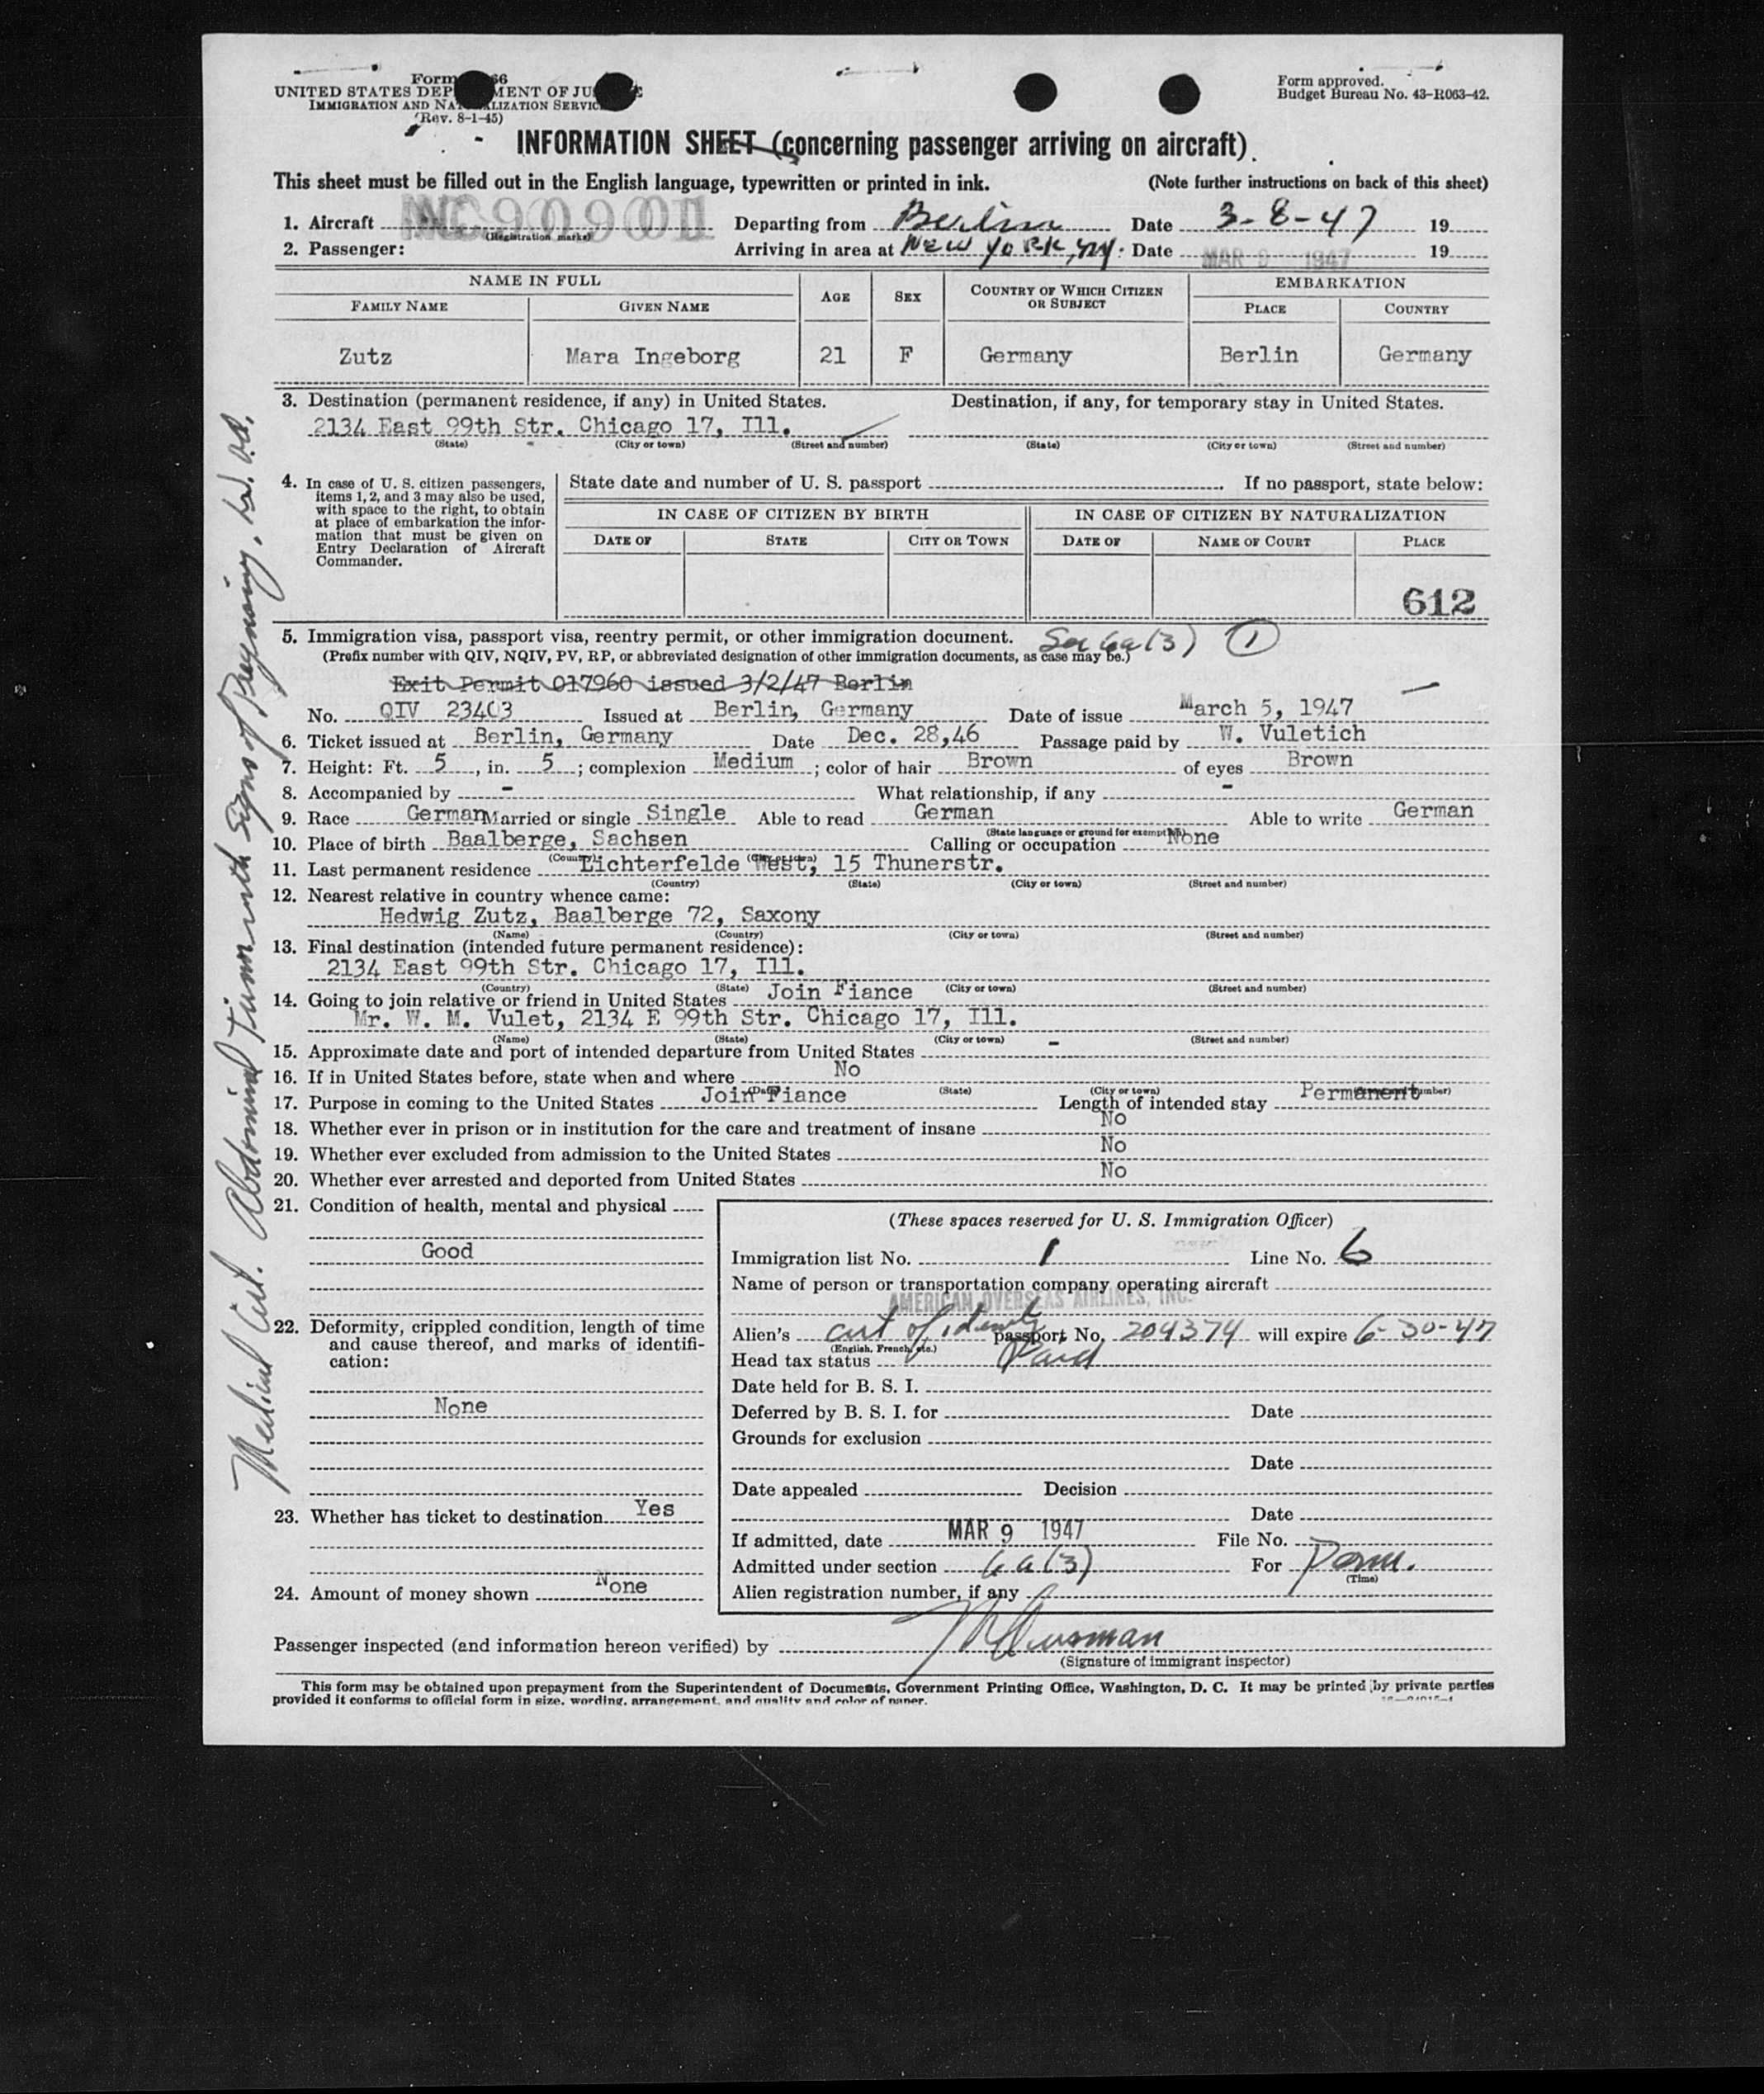 Form 66
UNITED STATES DEPARTMENT OF JUSTICE
IMMIGRATION AND NATURALIZATION SERVICE
(Rev. 8-1-45)
Form approved.
Budget Bureau No. 43-R063-42.
INFORMATION SHEET (concerning passenger arriving on aircraft)
This sheet must be filled out in the English language, typewritten or printed in ink. (Note further instructions on back of this sheet)
1. Aircraft NC90901 Departing from Berlin Date 3-8-47 19
(Registration marks)
2. Passenger: Arriving in area at NEW YORK, NY. Date MAR 9 1947 19
NAME IN FULL AGE SEX COUNTRY OF WHICH CITIZEN OR SUBJECT EMBARKATION
FAMILY NAME GIVEN NAME PLACE COUNTRY
Zutz Mara Ingeborg 21 F Germany Berlin Germany
3. Destination (permanent residence, if any) in United States. Destination, if any, for temporary stay in United States.
2134 East 99th Str. Chicago 17, Ill.
(State) (City or town) (Street and number) (State) (City or town) (Street and number)
4. In case of U. S. citizen passengers, items 1, 2, and 3 may also be used, with space to the right, to obtain at place of embarkation the information that must be given on Entry Declaration of Aircraft Commander.
State date and number of U. S. passport If no passport, state below:
IN CASE OF CITIZEN BY BIRTH IN CASE OF CITIZEN BY NATURALIZATION
DATE OF STATE CITY OR TOWN DATE OF NAME OF COURT PLACE
612
5. Immigration visa, passport visa, reentry permit, or other immigration document. Sec 6a(3) 1
(Prefix number with QIV, NQIV, PV, RP, or abbreviated designation of other immigration documents, as case may be.)
Exit Permit 017960 issued 3/2/47 Berlin
No. QIV 23403 Issued at Berlin, Germany Date of issue March 5, 1947
6. Ticket issued at Berlin, Germany Date Dec. 28,46 Passage paid by W. Vuletich
7. Height: Ft. 5, in. 5; complexion Medium; color of hair Brown of eyes Brown
8. Accompanied by - What relationship, if any -
9. Race German Married or single Single Able to read German Able to write German
(State language or ground for exemption)
10. Place of birth Baalberge, Sachsen Calling or occupation None
(Country) (City or town)
11. Last permanent residence Lichterfelde West, 15 Thunerstr.
(Country) (State) (City or town) (Street and number)
12. Nearest relative in country whence came:
Hedwig Zutz, Baalberge 72, Saxony
(Name) (Country) (City or town) (Street and number)
13. Final destination (intended future permanent residence):
2134 East 99th Str. Chicago 17, Ill.
(Country) (State) (City or town) (Street and number)
14. Going to join relative or friend in United States Join Fiance
Mr. W. M. Vulet, 2134 E 99th Str. Chicago 17, Ill.
(Name) (State) (City or town) (Street and number)
15. Approximate date and port of intended departure from United States -
16. If in United States before, state when and where No
(Date) (State) (City or town) (Street and number)
17. Purpose in coming to the United States Join Fiance Length of intended stay Permanent
18. Whether ever in prison or in institution for the care and treatment of insane No
19. Whether ever excluded from admission to the United States No
20. Whether ever arrested and deported from United States No
21. Condition of health, mental and physical
Good
22. Deformity, crippled condition, length of time and cause thereof, and marks of identification:
None
23. Whether has ticket to destination Yes
24. Amount of money shown None
(These spaces reserved for U. S. Immigration Officer)
Immigration list No. 1 Line No. 6
Name of person or transportation company operating aircraft
AMERICAN OVERSEAS AIRLINES, INC.
Alien's cert of identy passport No. 204374 will expire 6-30-47
(English, French, etc.)
Head tax status Paid
Date held for B. S. I.
Deferred by B. S. I. for Date
Grounds for exclusion
Date
Date appealed Decision
Date
If admitted, date MAR 9 1947 File No.
Admitted under section 6a(3) For Perm.
(Time)
Alien registration number, if any
Passenger inspected (and information hereon verified) by
(Signature of immigrant inspector)
This form may be obtained upon prepayment from the Superintendent of Documents, Government Printing Office, Washington, D. C. It may be printed by private parties
provided it conforms to official form in size, wording, arrangement, and quality and color of paper.
Medical Cert. Abdominal Tumor with Signs of Pregnancy,